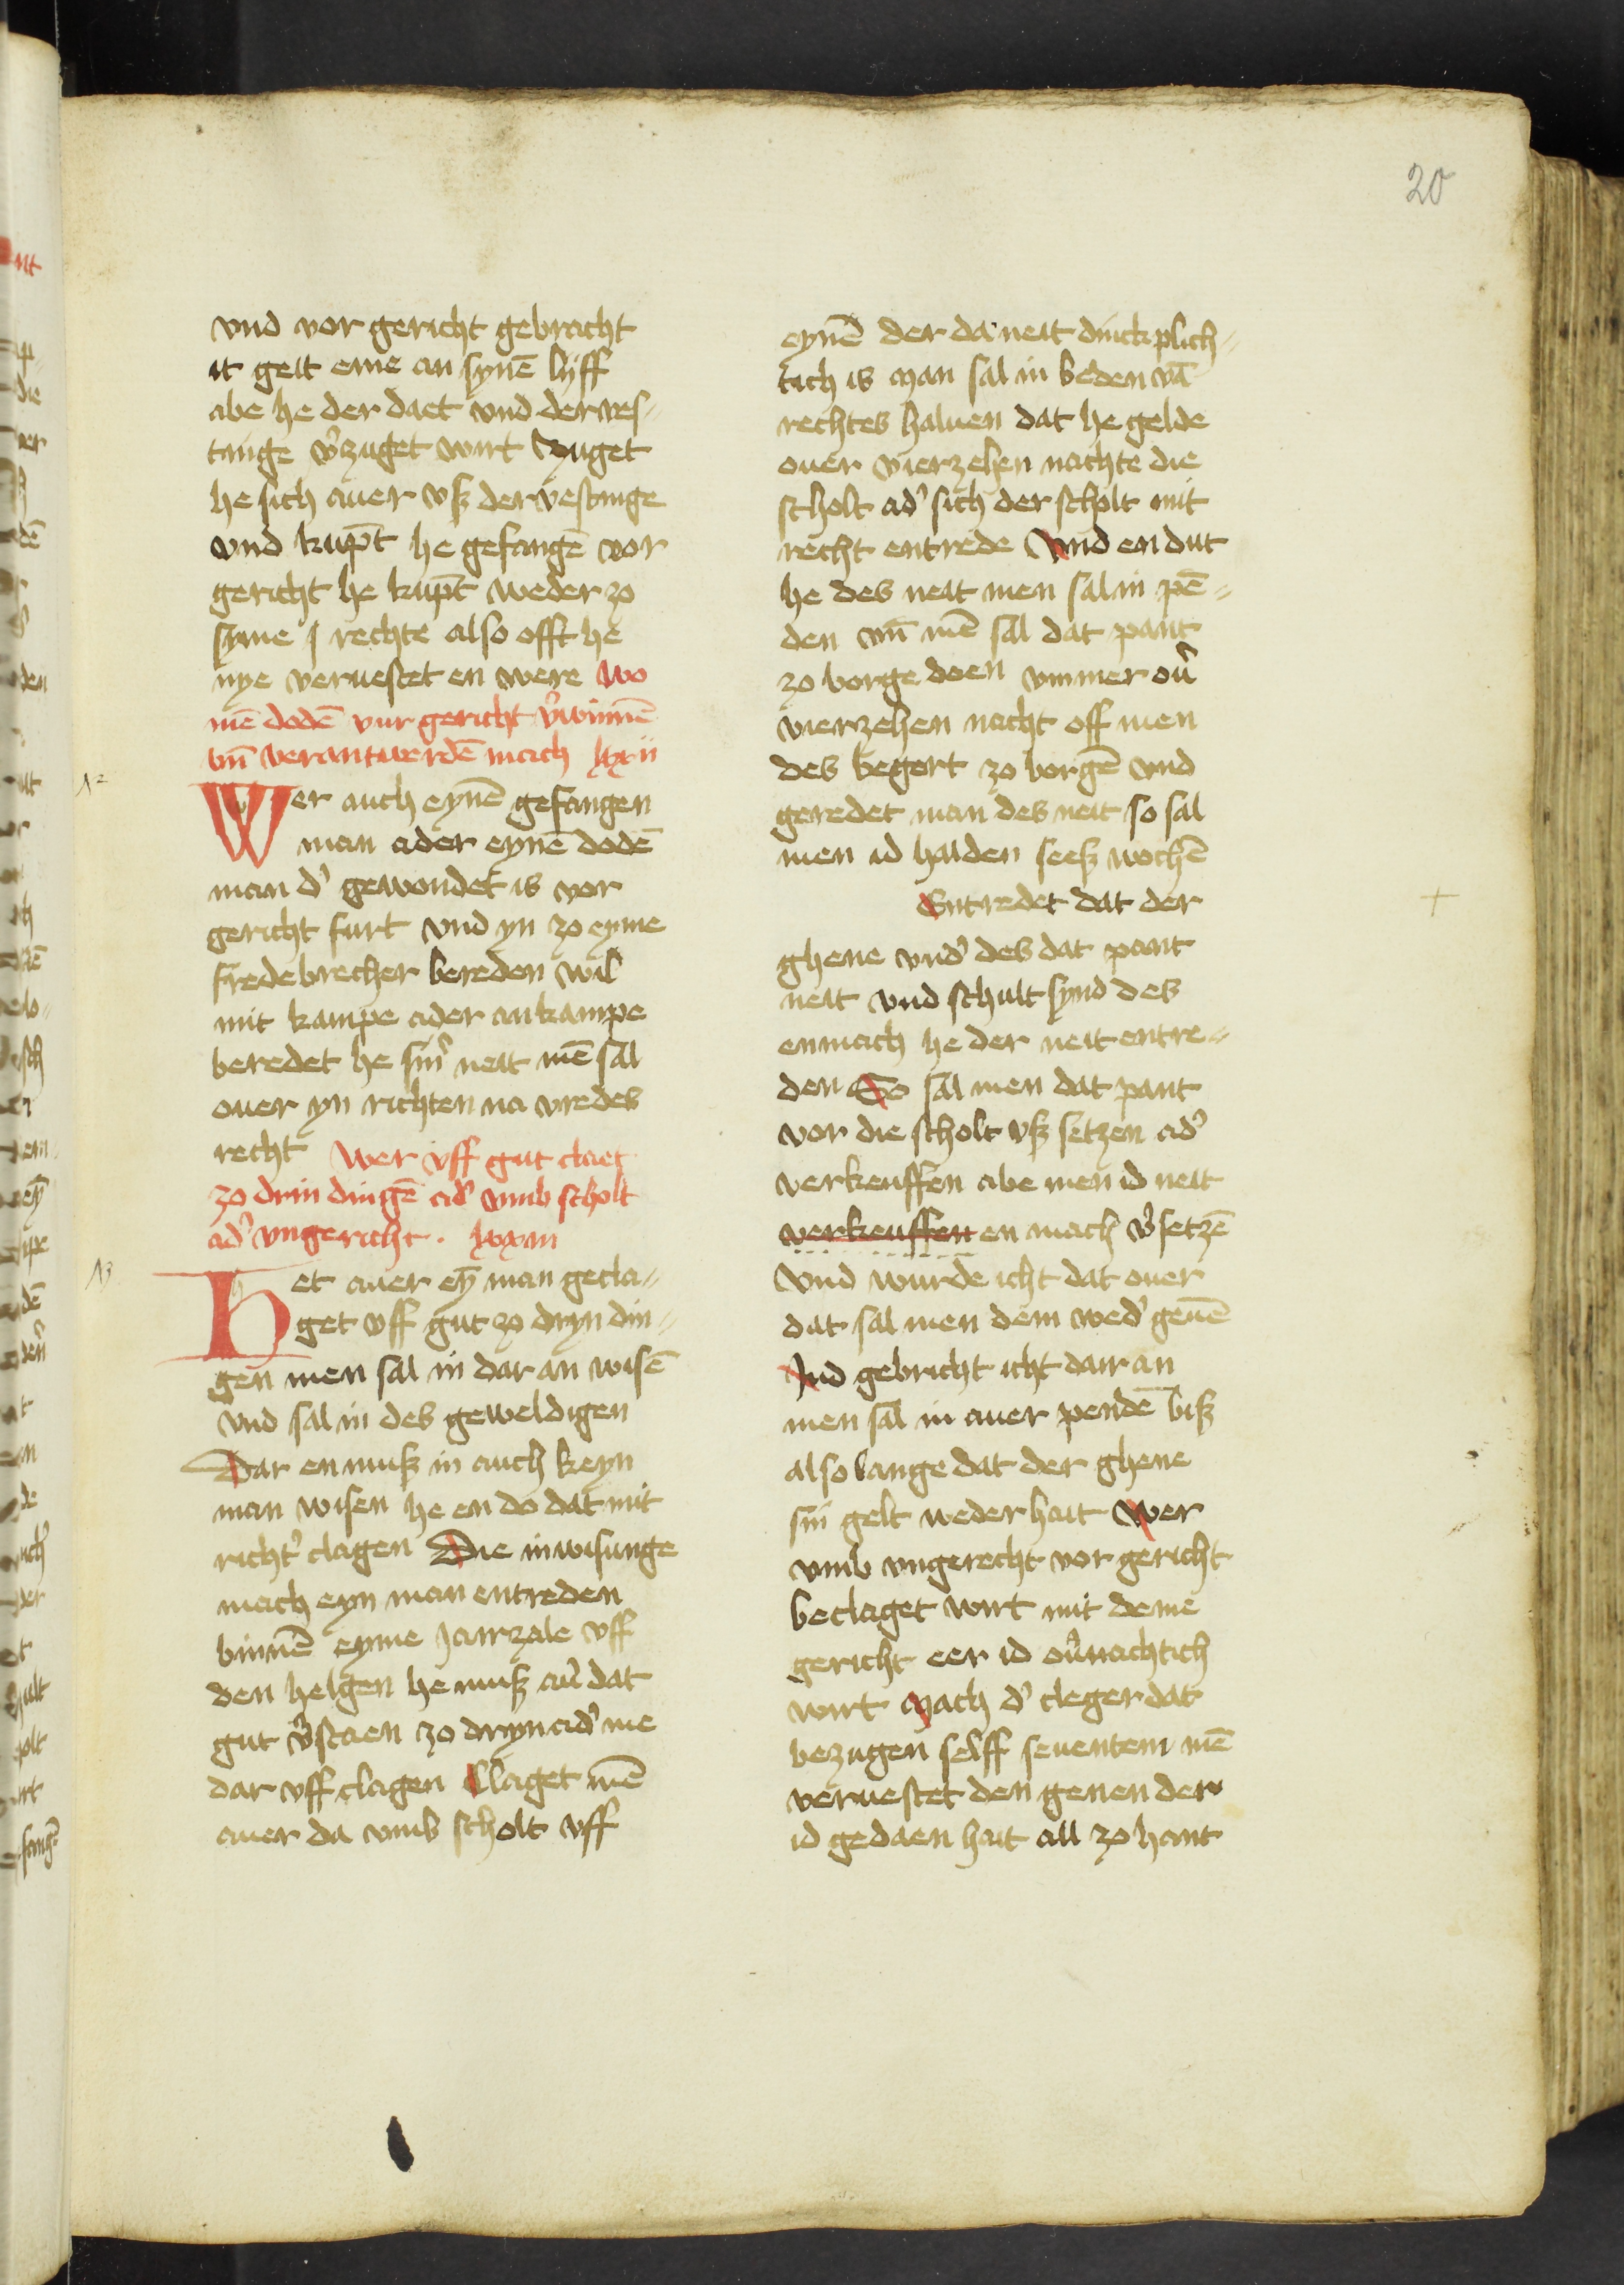 20
vnd vor gericht gebracht
it geit eme an synē lijff
abe he der daet vnd der ves-
tinge v᷒zuget wirt Zuget
he sich auer vß der vestinge
vnd kūpt he gefangē vor
gericht he kūpt weder zo
syme rechte also offt he
nye veruestet en were Wo
mē dodē vur gericht v᷒winnē
vn̄ verantwerdē mach lxxii
12
Wer auch eynē gefangen
man ader eynē dodē
man d᷒ gewondet is vor
gericht furt vnd yn zo eyme
fredebrecher bereden wil
mit kampe ader an kampe
beredet he sin᷒ neit mē sal
ouer yn richten na vredes
recht Wer vff gut claet
zo drin dingē ad᷒ vmb scholt
ad᷒ vngericht. lxxiii
13
Het auer eȳ man gecla-
get vff gut zo dryn din-
gen men sal in dar an wisē
vnd sal in des geweldigen
Dar en muß in auch keyn
man wisen he en do dat mit
richt᷒ clagen Die inwisunge
mach eyn man entreden
binnē eyme jarzale vff
den helgen he muß au᷒ dat
gut v᷒staen zo dryn ad᷒ me
dar vff clagen Claget mē
auer da vmb scholt vff
eynē der da neit dinckplich-
tich is Man sal in beden vā
rechtes haluen dat he gelde
ouer vierzehen nachte die
scholt ad᷒ sich der scholt mit
recht entrede Vnd en dut
he des neit men sal in pē-
den vn̄ mē sal dat pant
zo borge doen vmmer ou᷒
vierzehen nacht off men
des begert zo borgē vnd
geredet man des neit so sal
men id halden seeß wochē
Entredet dat der
ghene vnd᷒ des dat pant
neit vnd schult synd des
enmach he der neit entre-
den So sal men dat pant
vor die scholt vß setzen ad᷒
verkeuffen abe men id neit
verkeuffen en mach v᷒setzē
Vnd wurde icht dat ouer
dat sal men dem wed᷒ geuē
Ind gebricht icht dair an
men sal in auer pendē biß
also lange dat der ghene
sin gelt weder hait Wer
vmb vngerecht vor gericht
beclaget wirt mit deme
gericht eer id ou᷒nachtich
wirt Mach d᷒ cleger dat
bezugen selff seuentem mē
veruestet den genen der
id gedaen hait all zo hant